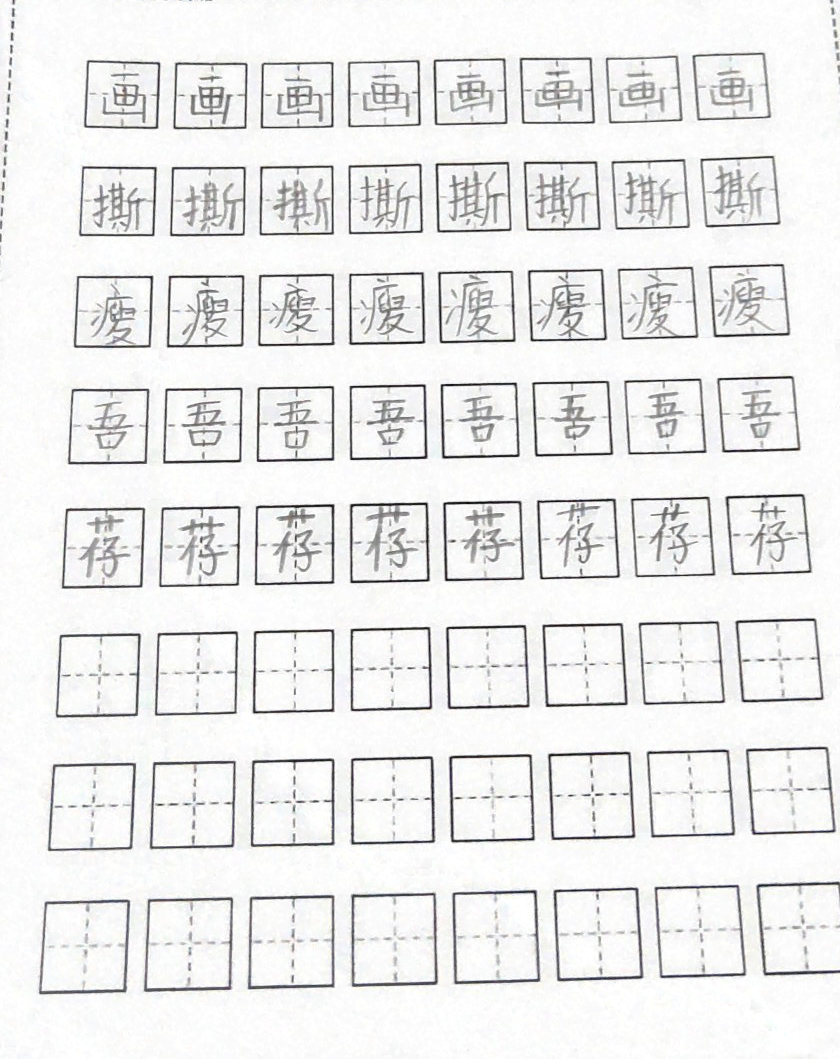 画画画画画画画画
撕撕撕撕撕撕撕撕
瘦瘦瘦瘦瘦瘦瘦瘦
吾吾吾吾吾吾吾吾
荐荐荐荐荐荐荐荐